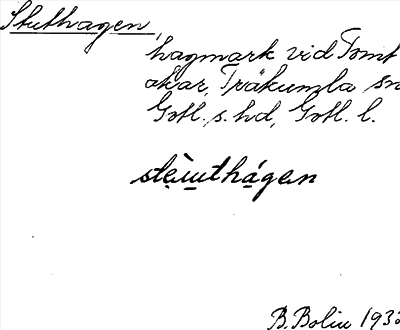 Stuthagen,
hagmark vid Tomt
åkar, Träkumla sn
Gotl. s. hd, Gotl. l.
stèuthágen
B. Bolin 193